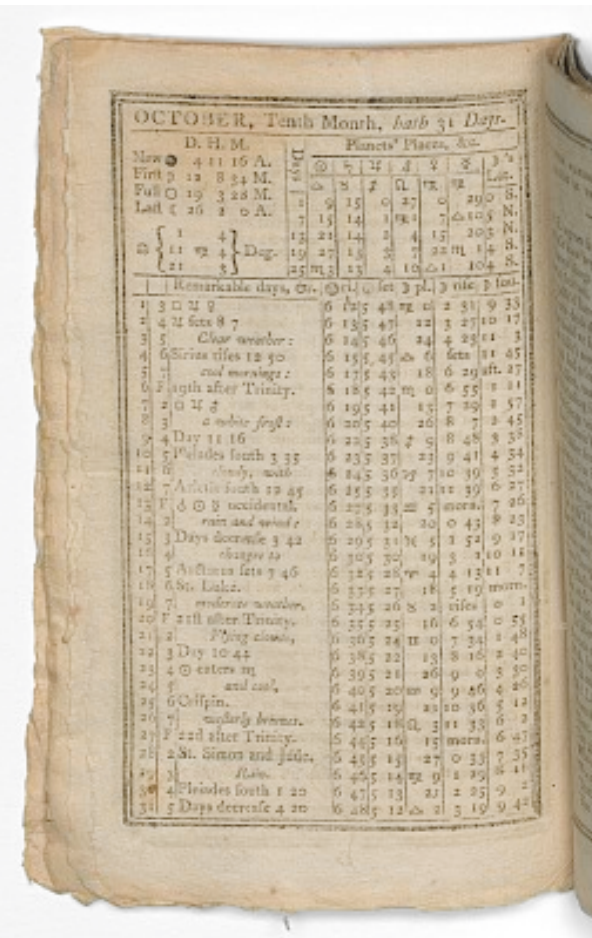 OCTOBER, Tenth Month, hath 31 Days.
D. H. M. Planets' Places, &c.
New ● 4 11 16 A. Days ☉ ♄ ♃ ♂ ♀ ☿ ☽'s
First ☽ 12 8 34 M. Lat.
Full ○ 19 3 28 M. 1 9 15 0 27 0 29 0 S.
Last ☾ 26 2 0 A. 7 15 14 1 ♍ 1 7 ♎ 10 5 N.
1 4 13 21 14 2 4 15 20 3 N.
☊ 11 ♍ 4 Deg. 19 27 13 3 7 22 ♏ 1 4 S.
21 3 25 ♏ 3 13 4 10 ♎ 1 10 4 S.
Remarkable days, &c. ☉ri. ☉set ☽ pl. ☽ rise ☽ sou.
1 3 □ ♃ ♀ 6 12 5 48 ♍ 0 2 31 9 33
2 4 ♃ sets 8 7 6 13 5 47 12 3 27 10 17
3 5 Clear weather: 6 14 5 46 24 4 25 11 3
4 6 Sirius rises 12 50 6 15 5 45 ♎ 6 sets 11 45
5 7 cool mornings: 6 17 5 43 18 6 29 aft. 27
6 F 19th after Trinity. 6 18 5 42 ♏ 0 6 55 1 11
7 2 □ ♃ ♂ 6 19 5 41 13 7 29 1 57
8 3 a white frost: 6 20 5 40 26 8 7 2 45
9 4 Day 11 16 6 22 5 38 ♐ 9 8 48 3 38
10 5 Pleiades south 3 35 6 23 5 37 23 9 41 4 34
11 6 cloudy, with 6 24 5 36 ♑ 7 10 39 5 32
12 7 south 12 45 6 25 5 35 21 11 39 6 27
13 F ☌ ☉ ☿ occidental. 6 27 5 33 ♒ 5 morn. 7 26
14 2 rain and wind: 6 28 5 32 20 0 43 8 23
15 3 Days decrease 3 42 6 29 5 31 ♓ 5 1 52 9 17
16 4 changes to 6 30 5 30 19 3 1 10 18
17 5 Arcturus sets 7 46 6 32 5 28 ♈ 4 4 13 11 7
18 6 St. Luke. 6 33 5 27 18 5 19 morn.
19 7 moderate weather. 6 34 5 26 ♉ 2 rises 0 1
20 F 21st after Trinity. 6 35 5 25 16 6 54 0 55
21 2 Flying clouds, 6 36 5 24 ♊ 0 7 34 1 48
22 3 Day 10 44 6 38 5 22 13 8 16 2 40
23 4 ☉ enters ♏ 6 39 5 21 26 9 0 3 30
24 5 and cool, 6 40 5 20 ♋ 9 9 46 4 26
25 6 Crispin. 6 41 5 19 21 10 36 5 12
26 7 westerly breezes. 6 42 5 18 ♌ 3 11 33 6 2
27 F 22d after Trinity. 6 44 5 16 15 morn. 6 47
28 2 St. Simon and Jude. 6 45 5 15 27 0 33 7 35
29 3 Rain. 6 46 5 14 ♍ 9 1 29 8 21
30 4 Pleiades south 1 20 6 47 5 13 21 2 25 9 2
31 5 Days decrease 4 20 6 48 5 12 ♎ 2 3 19 9 42